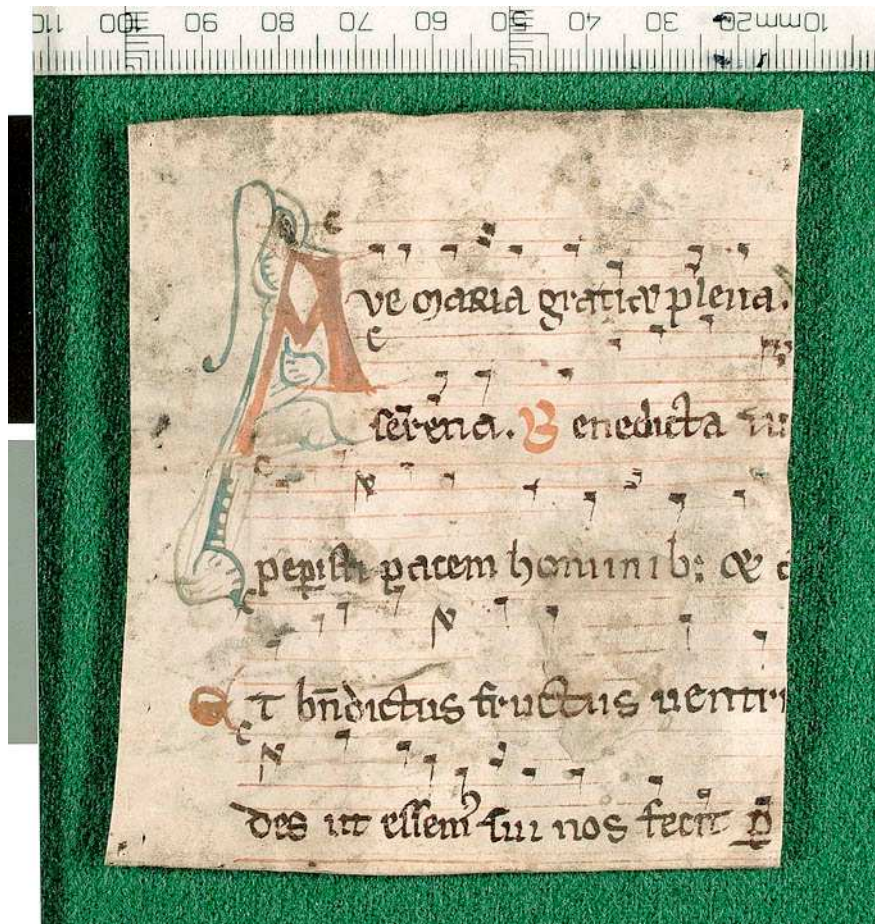 110 100 90 80 70 60 50 40 30 20 10mm
Ave maria gratia plena.
serena. Benedicta tu
peperisti pacem hominib; &
Et bn̄dictus fructus uentri
des ut essem᷒ sui nos fecit